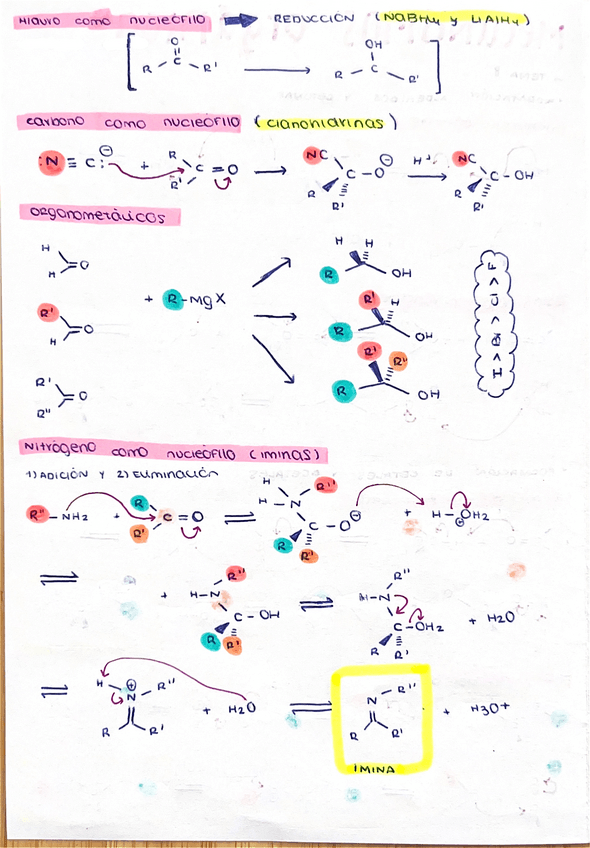 Hidruro como nucleófilo ➡ REDUCCIÓN (NaBH4 y LiAlH4)
O OH
R C R' → R - C R'
carbono como nucleófilo (cianohidrinas)
:N ≡ C:⊖ + R C = O R' → NC C - O⊖ R R' H+ → NC C - OH R R'
organometálicos
H O H
R' O H
R' O R''
+ R-MgX
R H H OH
R R' H OH
R R' R'' OH
I > Br > Cl > F
Nitrógeno como nucleófilo (iminas)
1) ADICIÓN Y 2) Eliminación
R'' - NH2 + R C = O R' ⇌ H H - N R'' C - O⊖ R R'' + H - OH2 ⊕
⇌ + H-N R'' C - OH R R' ⇌ H-N R'' C - OH2 R R' + H2O
⇌ H ⊕ N - R'' R R' + H2O ⇌ N - R'' R R' + H3O+
IMINA